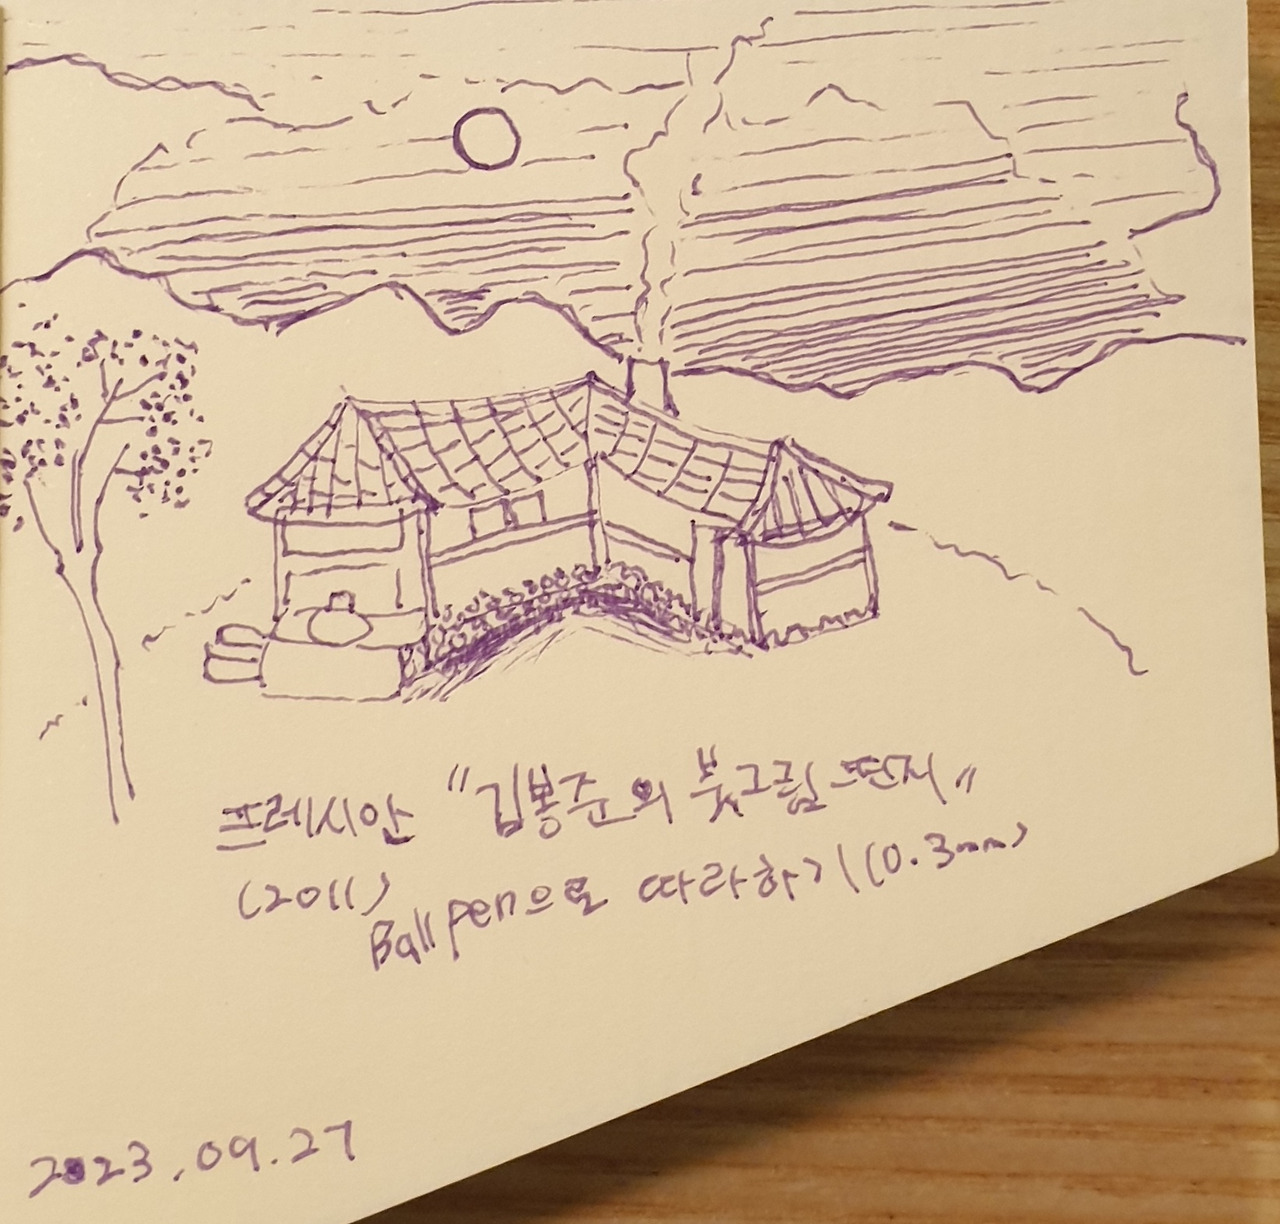 프레시안 "김봉준의 붓그림 편지"
(2011)
Ball pen으로 따라하기 (0.3mm)
2023.09.27